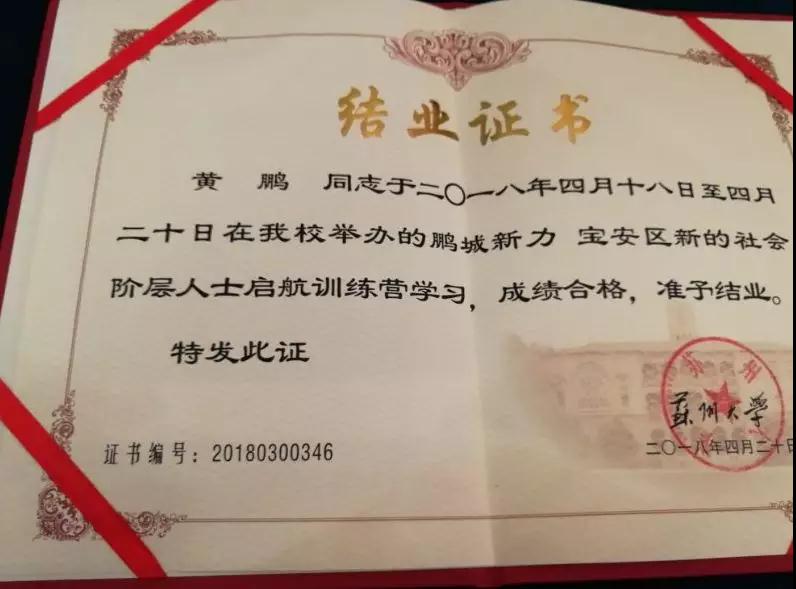 结业证书
黄 鹏 同志于二〇一八年四月十八日至四月
二十日在我校举办的鹏城新力 宝安区新的社会
阶层人士启航训练营学习，成绩合格，准予结业。
特发此证
苏州
蘇州大学
二〇一八年四月二十日
证书编号：20180300346